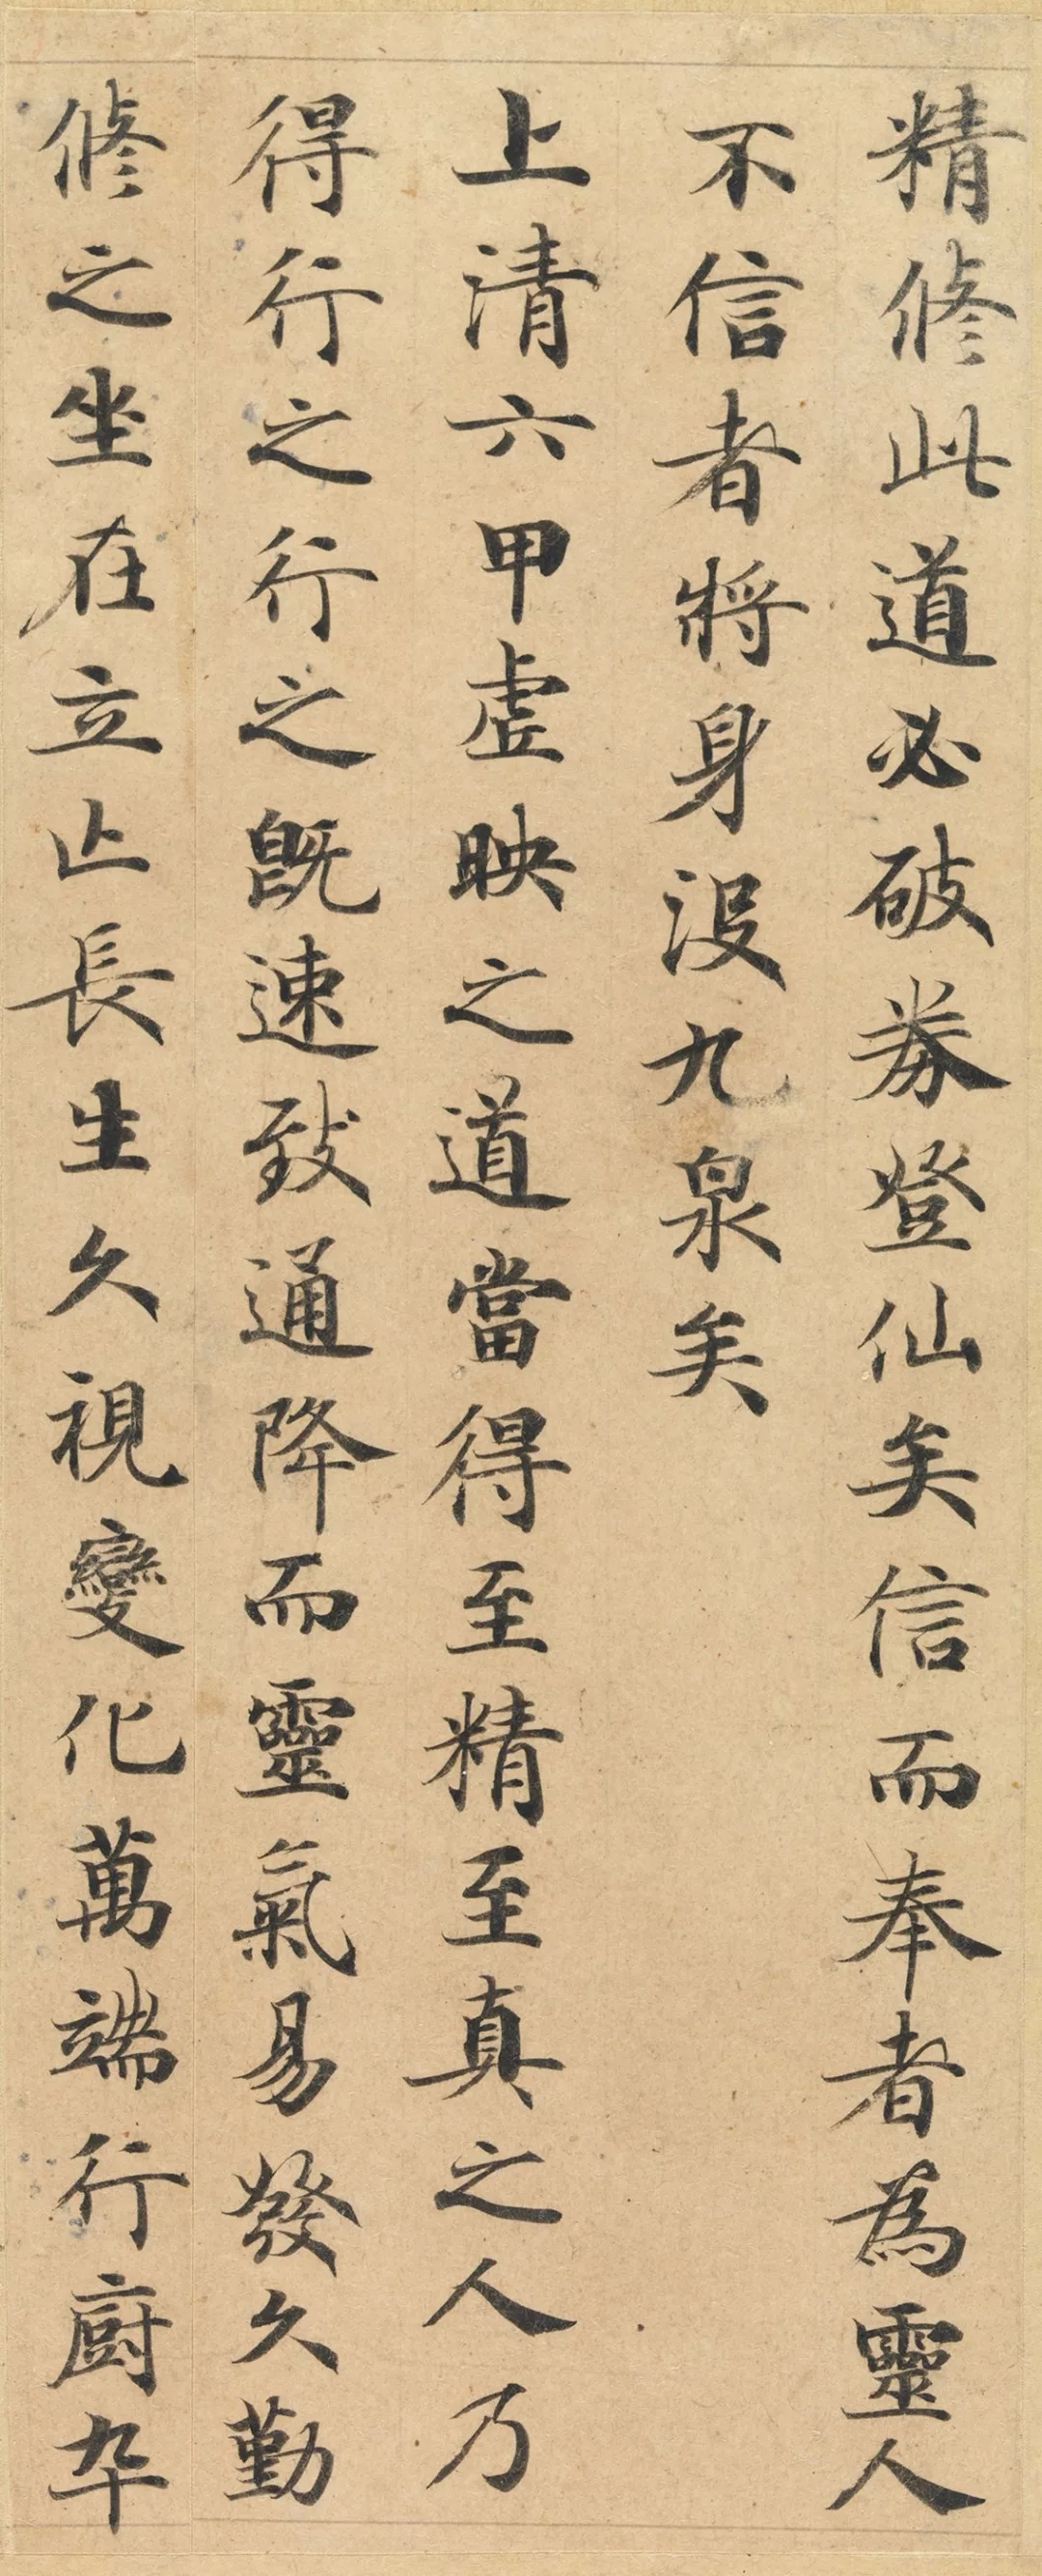 精脩此道必破券登仙矣信而奉者為靈人
不信者將身没九泉矣
上清六甲虛映之道當得至精至真之人乃
得行之行之既速致通降而靈氣易發久勤
脩之坐在立亡長生久視變化萬端行廚卒